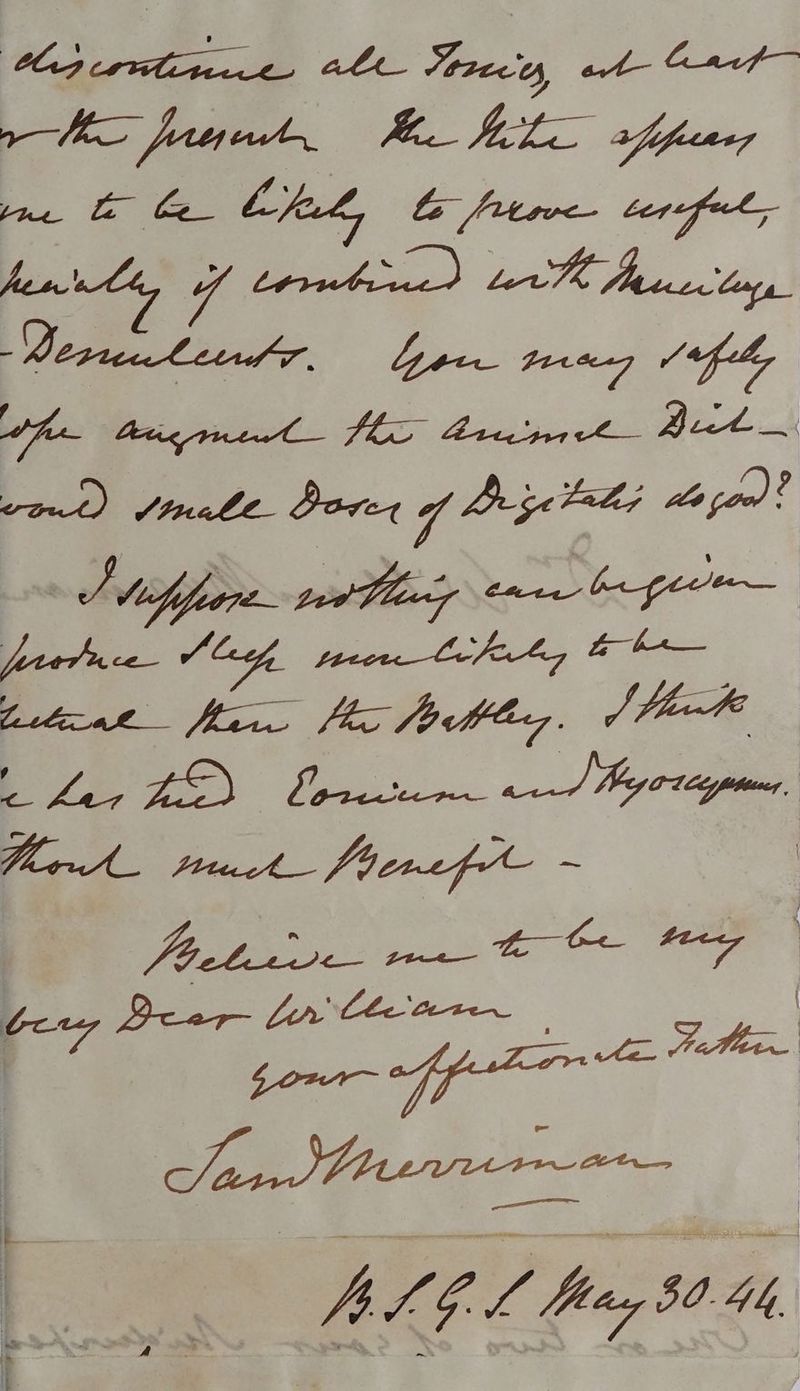 discontinue all Tonics, at least
r the present The Nitre appears
me to be likely to prove useful,
pecially if combined with Mucilage
- Demulcents. You may safely
ope augment the Animal Diet -
would small Doses of Digitalis do good?
I suppose nothing can be given
produce Sleep more likely to be
fectual than the Battley. I think
e has tried Conium and Hyoscyamus.
thout much Benefit -
Believe me to be my
very Dear William
your affectionate Father
Saml Merriman
B. S. G. S. May 30. 44.